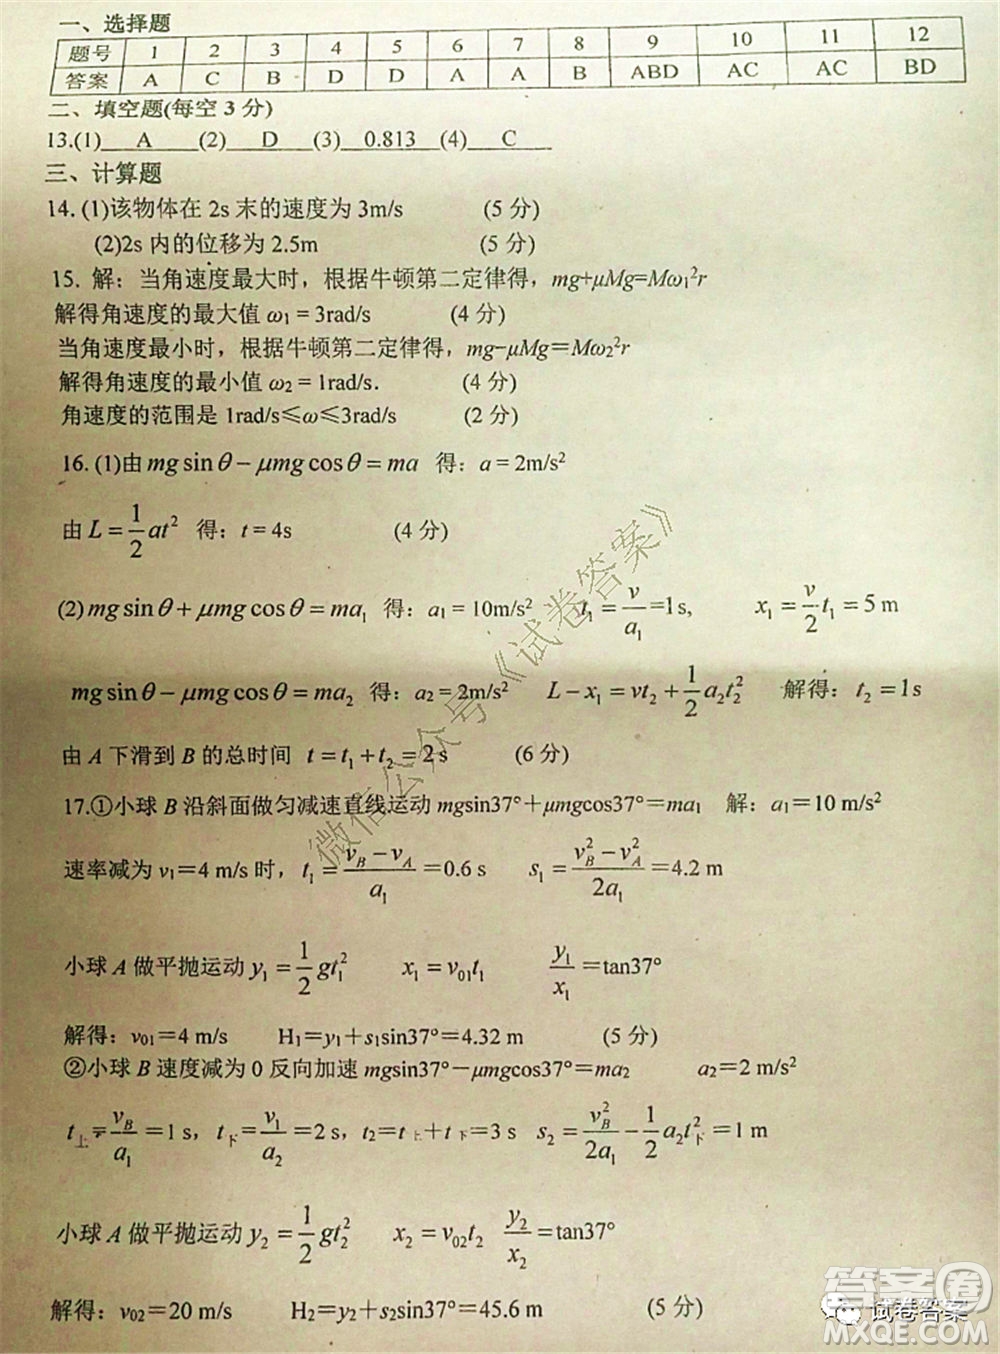 一、选择题
题号 1 2 3 4 5 6 7 8 9 10 11 12
答案 A C B D D A A B ABD AC AC BD
二、填空题(每空 3 分)
13.(1) A (2) D (3) 0.813 (4) C
三、计算题
14. (1)该物体在 2s 末的速度为 3m/s (5 分)
(2)2s 内的位移为 2.5m (5 分)
15. 解：当角速度最大时，根据牛顿第二定律得，mg+μMg=Mω₁²r
解得角速度的最大值 ω₁ = 3rad/s (4 分)
当角速度最小时，根据牛顿第二定律得，mg-μMg=Mω₂²r
解得角速度的最小值 ω₂ = 1rad/s. (4 分)
角速度的范围是 1rad/s≤ω≤3rad/s (2 分)
16. (1)由 mg sin θ - μmg cos θ = ma 得：a = 2m/s²
由 L = 1/2 at² 得：t = 4s (4 分)
(2) mg sin θ + μmg cos θ = ma₁ 得：a₁ = 10m/s² t₁ = v/a₁ =1s, x₁ = v/2 t₁ = 5 m
mg sin θ - μmg cos θ = ma₂ 得：a₂ = 2m/s² L - x₁ = vt₂ + 1/2 a₂t₂² 解得：t₂ = 1s
由 A 下滑到 B 的总时间 t = t₁ + t₂ = 2 s (6 分)
17.①小球 B 沿斜面做匀减速直线运动 mgsin37°+μmgcos37°=ma₁ 解：a₁=10 m/s²
速率减为 v₁=4 m/s 时，t₁ = (v_B - v_A)/a₁ =0.6 s s₁ = (v_B² - v_A²)/2a₁ =4.2 m
小球 A 做平抛运动 y₁ = 1/2 gt₁² x₁ = v₀₁t₁ y₁/x₁ =tan37°
解得：v₀₁=4 m/s H₁=y₁+s₁sin37°=4.32 m (5 分)
②小球 B 速度减为 0 反向加速 mgsin37°-μmgcos37°=ma₂ a₂=2m/s²
t上 = v_B/a₁ =1 s，t下 = v₁/a₂ =2 s，t₂=t上+t下=3 s s₂ = v_B²/2a₁ - 1/2 a₂t下² =1 m
小球 A 做平抛运动 y₂ = 1/2 gt₂² x₂ = v₀₂t₂ y₂/x₂ =tan37°
解得：v₀₂=20 m/s H₂=y₂+s₂sin37°=45.6 m (5 分)
微信公众号《试卷答案》
试卷答案
答案圈
MXQE.COM